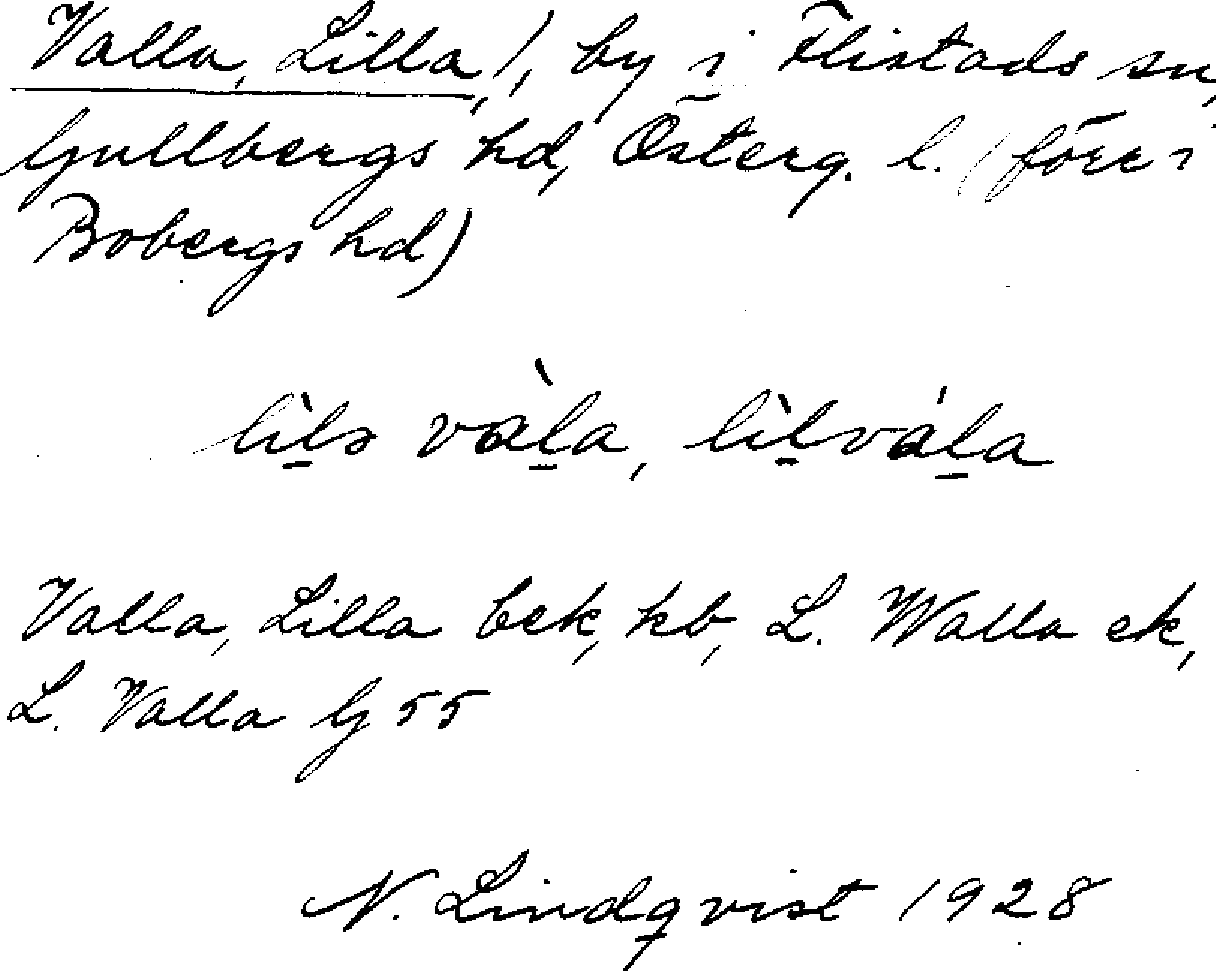 Valla, Lilla /, by i Flistads sn,
Gullbergs hd, Österg. l. (förr i
Bobergs hd)
lìl̠ə vàl̠a, lìl̠vál̠a
Valla, Lilla bek, kb, L. Walla ek,
L. Valla G 55
N. Lindqvist 1928